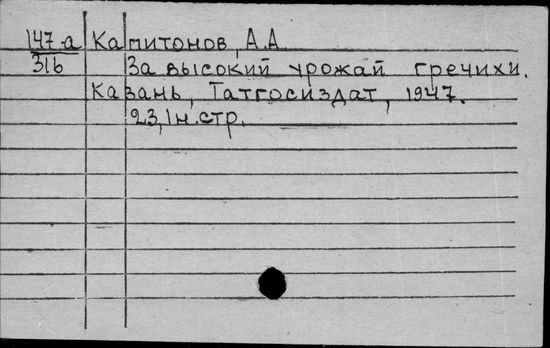 147-а Капитонов, А.А
316 За высокий урожай гречихи.
Казань, Татгосиздат, 1947.
23,1н.стр.